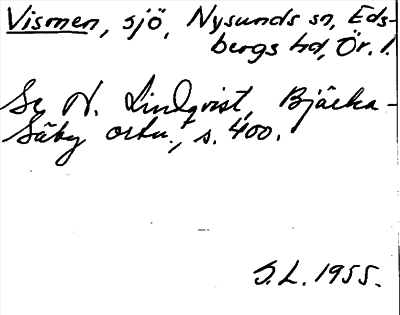 Vismen, sjö, Nysunds sn, Eds-
bergs hd, Ör. l.
Se N. Lindqvist, Bjärka-
Säby ortn., s. 400.
S.L. 1955.